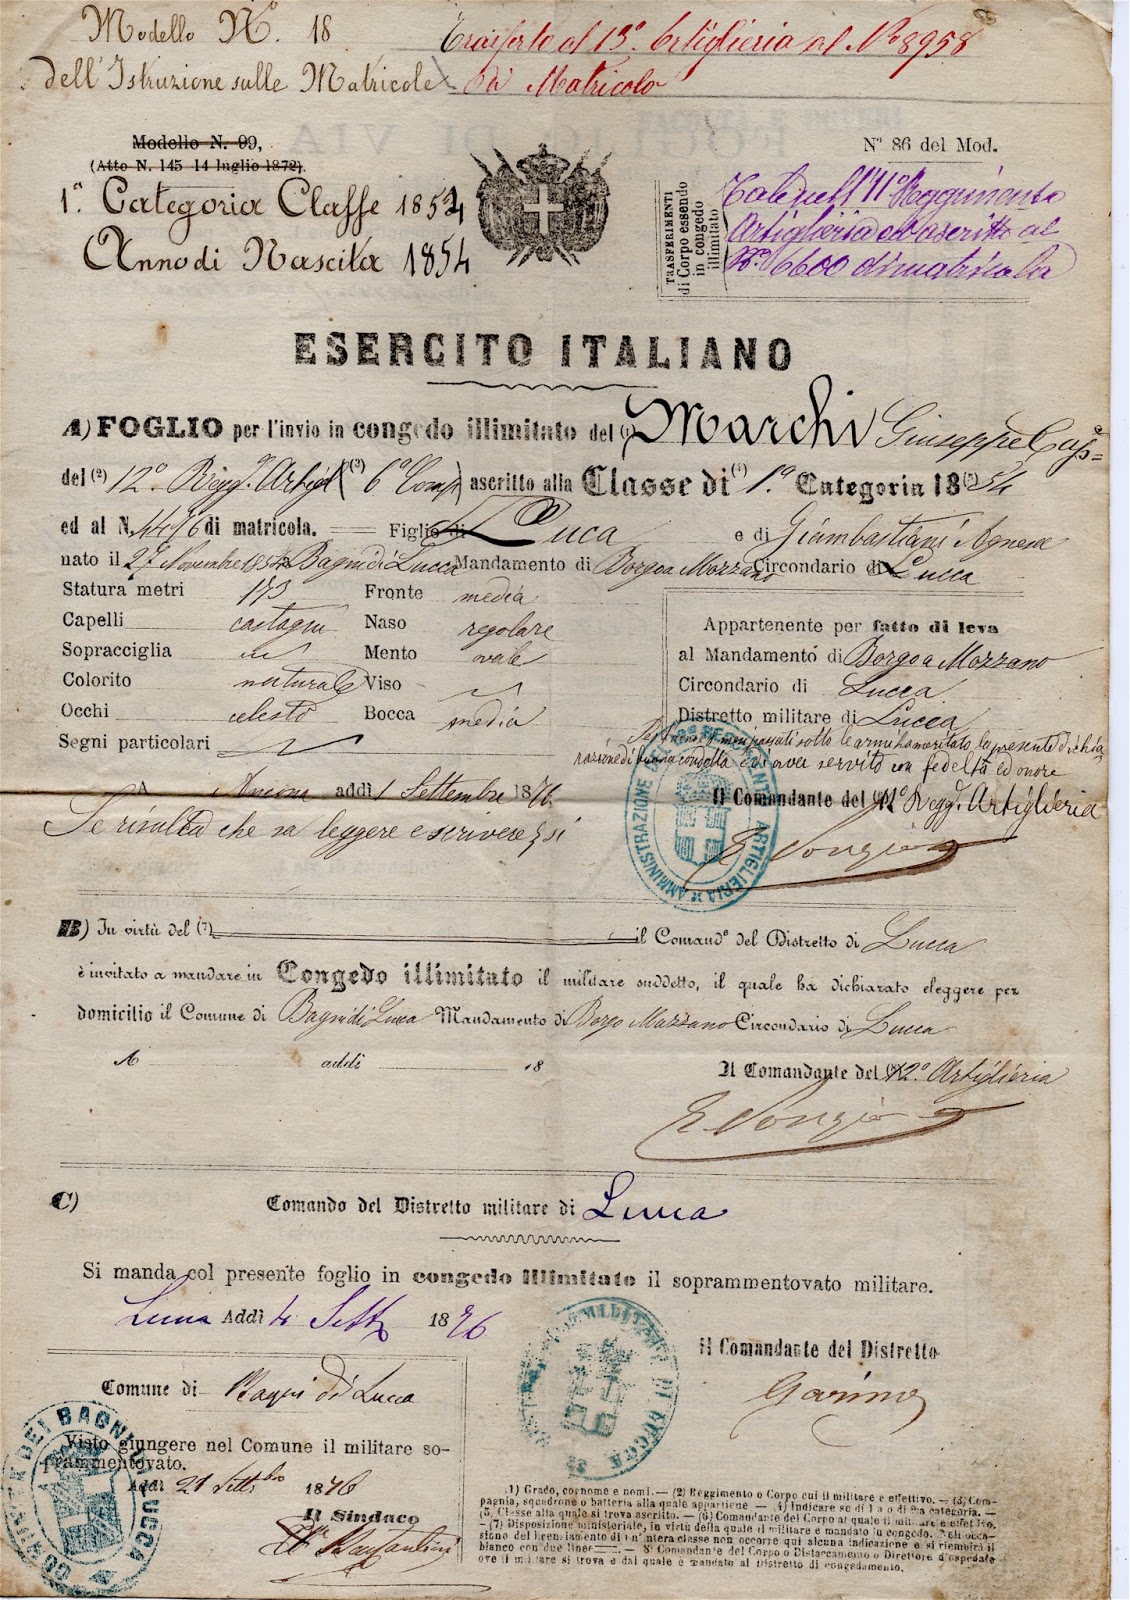 Modello N.º 18
dell'Istruzione sulle Matricole
Trasferto al 13º Artiglieria al Nº 8958
di Matricola
Modello N. 99,
(Atto N. 145 14 luglio 1872).
1ª Categoria Classe 1854
Anno di Nascita 1854
Nº 86 del Mod.
TRASFERIMENTI
di Corpo essendo
in congedo
illimitato
Artiglieria ed ascritto al
Nº 6600 di matricola
ESERCITO ITALIANO
A) FOGLIO per l'invio in congedo illimitato del (1) Marchi Giuseppe
del (2) 12º Regg. Artigl (3) 6ª Comp ascritto alla Classe di (4) 1ª Categoria 18(5)54
ed al N. 4476 di matricola. Figlio di Luca e di Giambastiani Agnese
nato il 27 Novembre 1854 Bagni di Lucca Mandamento di Borgo a Mozzano Circondario di Lucca
Statura metri 173 Fronte media
Capelli castagni Naso regolare
Sopracciglia Mento ovale
Colorito naturale Viso
Occhi celesti Bocca media
Segni particolari
Appartenente per fatto di leva
al Mandamento di Borgo a Mozzano
Circondario di Lucca
Distretto militare di Lucca
mesi passati sotto le armi ha meritato la presente dichia
razione di buona condotta ed aver servito con fedeltà ed onore
A Ancona addì 1 Settembre 1876
Il Comandante del 12º Regg. Artiglieria
Se risulta che sa leggere e scrivere si
AMMINISTRAZIONE ARTIGLIERIA
B) In virtù del (7) il Comandº del Distretto di Lucca
è invitato a mandare in Congedo illimitato il militare suddetto, il quale ha dichiarato eleggere per
domicilio il Comune di Bagni di Lucca Mandamento di Borgo Mozzano Circondario di Lucca
A addì 18
Il Comandante del 12º Artiglieria
C) Comando del Distretto militare di Lucca
Si manda col presente foglio in congedo illimitato il soprammentovato militare.
Lucca Addì 4 Sett 1876
Il Comandante del Distretto
Comune di Bagni di Lucca
Visto giungere nel Comune il militare so-
prammentovato.
Addì 21 Settbre 1876
Il Sindaco
(1) Grado, cognome e nomi. — (2) Reggimento o Corpo cui il militare è effettivo. — (3) Com-
pagnia, squadrone o batteria alla quale appartiene — (4) Indicare se di 1ª o di 2ª categoria. —
(5) Classe alla quale si trova ascritto. — (6) Comandante del Corpo al quale il militare è effettivo.
— (7) Disposizione ministeriale, in virtù della quale il militare è mandato in congedo. Nell'occa-
sione del licenziamento di un'intera classe non occorre qui alcuna indicazione e si riempirà il
bianco con due linee. — 8º Comandante del Corpo o Distaccamento o Direttore d'ospedale
ove il militare si trova e dal quale è mandato al Distretto di congedamento.